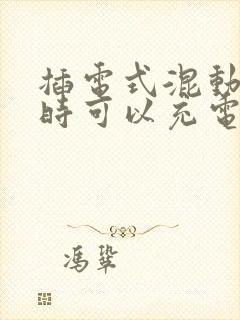 插電式混動
時可以充電
馮鞏